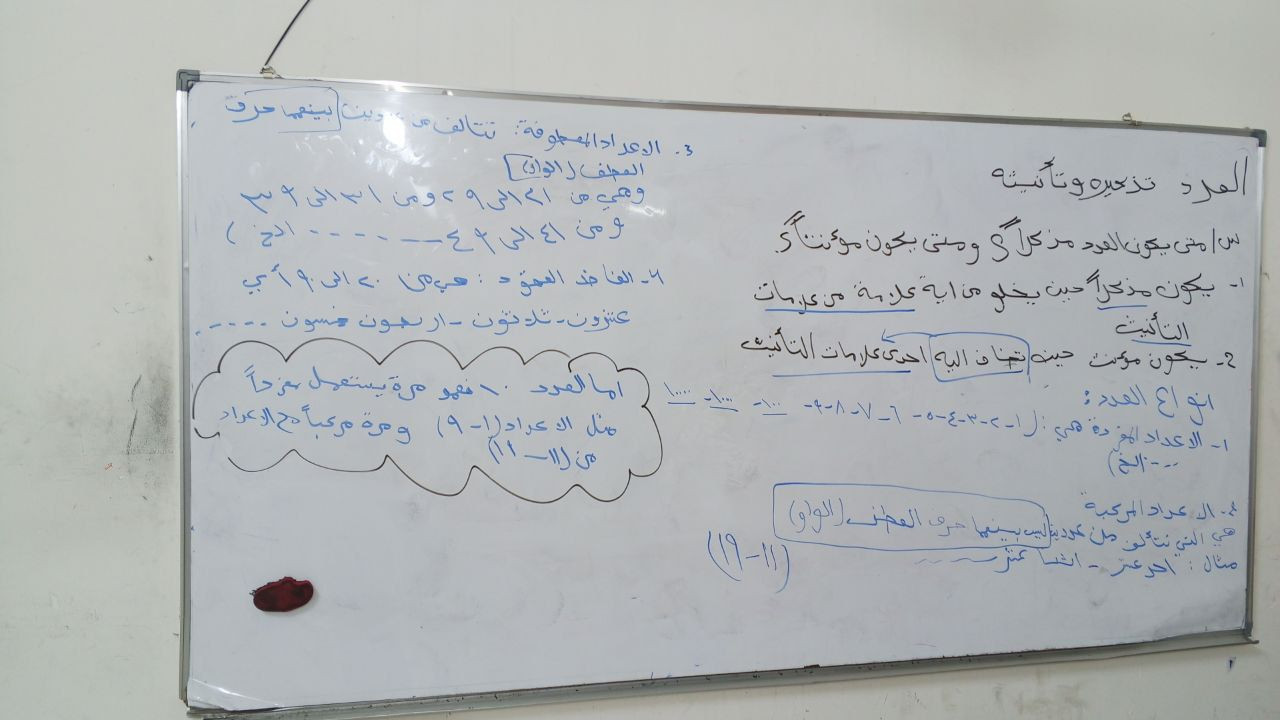 العدد تذكيره وتأنيثه
س/ متى يكون العدد مذكراً؟ ومتى يكون مؤنثاً؟
١- يكون مذكراً حين يخلو من اية علامة من علامات
التأنيث
2- يكون مؤنث حين تضاف اليه احدى علامات التأنيث
انواع العدد:
١- الاعداد المفردة هي: (١-٢-٣-٤-٥-٦-٧-٨-٩- ١٠٠- ١٠٠٠- ١٠٠٠٠
--- الخ)
٢- الاعداد المركبة
هي التي تتألف من عددين ليس بينهما حرف العطف (الواو)
مثال: احد عشر - اثنا عشر ----
(١١-١٩)
٣- الاعداد المعطوفة: تتالف من عددين بينهما حرف
العطف (الواو)
وهي من ٢١ الى ٢٩ ومن ٣١ الى ٣٩
ومن ٤١ الى ٤٩ ------ الخ)
٤- الفاظ العقود: هي من ٢٠ الى ٩٠ أي
عشرون - ثلاثون - اربعون خمسون ----
اما العدد ١٠ فهو مرة يستعمل مفرداً
مثل الاعداد (١-٩) ومرة مركباً مع الاعداد
من (١١-١٩)